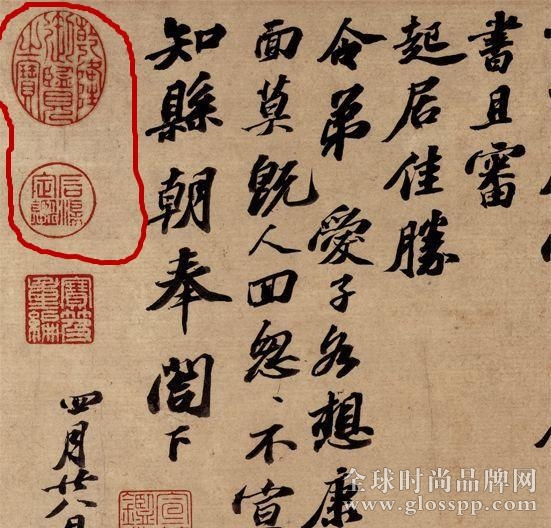 書且審
起居佳勝
令弟 愛子各想康
面莫既人回怱〻不宣
知縣朝奉閤下
四月廿八日
乾隆御覽之寶
石渠定鑑
寶笈重編
全球时尚品牌网
www.glosspp.com